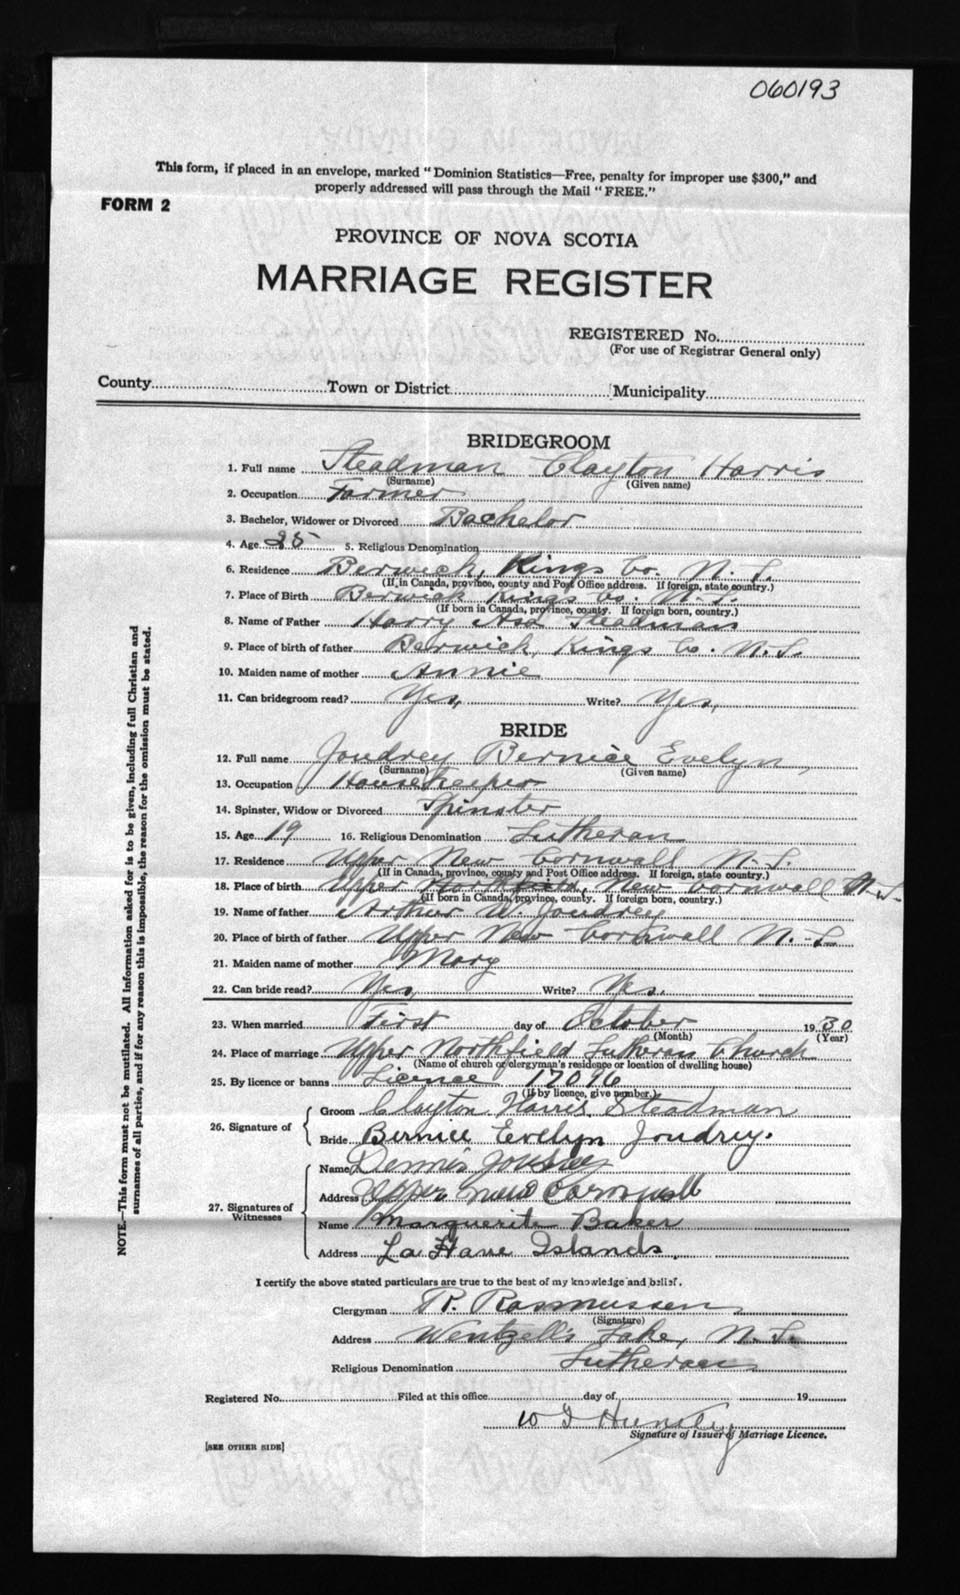 060193
This form, if placed in an envelope, marked "Dominion Statistics—Free, penalty for improper use $300," and
properly addressed will pass through the Mail "FREE."
FORM 2
PROVINCE OF NOVA SCOTIA
MARRIAGE REGISTER
REGISTERED No.
(For use of Registrar General only)
County Town or District Municipality
BRIDEGROOM
1. Full name Steadman Clayton Harris
(Surname) (Given name)
2. Occupation Farmer
3. Bachelor, Widower or Divorced Bachelor
4. Age 25 5. Religious Denomination
6. Residence Berwick, Kings Co. N.S.
(If in Canada, province, county and Post Office address. If foreign, state country.)
7. Place of Birth Berwick Kings Co. N.S.
(If born in Canada, province, county. If foreign born, country.)
8. Name of Father Harry Asa Steadman
9. Place of birth of father Berwick, Kings Co. N.S.
10. Maiden name of mother Annie
11. Can bridegroom read? Yes, Write? Yes,
BRIDE
12. Full name Joudrey Bernice Evelyn,
(Surname) (Given name)
13. Occupation Housekeeper
14. Spinster, Widow or Divorced Spinster
15. Age 19 16. Religious Denomination Lutheran
17. Residence Upper New Cornwall N.S.
(If in Canada, province, county and Post Office address. If foreign, state country.)
18. Place of birth Upper Northfield, New Cornwall N.S.
(If born in Canada, province, county. If foreign born, country.)
19. Name of father Arthur W. Joudrey
20. Place of birth of father Upper New Cornwall N.S.
21. Maiden name of mother Mary
22. Can bride read? Yes, Write? Yes.
23. When married First day of October 1930
(Month) (Year)
24. Place of marriage Upper Northfield Lutheran Church
(Name of church or clergyman's residence or location of dwelling house)
25. By licence or banns Licence 17096
(If by licence, give number.)
26. Signature of Groom Clayton Harris Steadman
Bride Bernice Evelyn Joudrey.
27. Signatures of Witnesses Name Dennis
Address Upper new Cornwall
Name Marguerite Baker
Address La Have Islands.
I certify the above stated particulars are true to the best of my knowledge and belief.
Clergyman R. Rasmussen
(Signature)
Address Wentzell's Lake, N.S.
Religious Denomination Lutheran
Registered No. Filed at this office day of 19
W
Signature of Issuer of Marriage Licence.
[SEE OTHER SIDE]
NOTE.—This form must not be mutilated. All information asked for is to be given, including full Christian and
surnames of all parties, and if for any reason this is impossible, the reason for the omission must be stated.